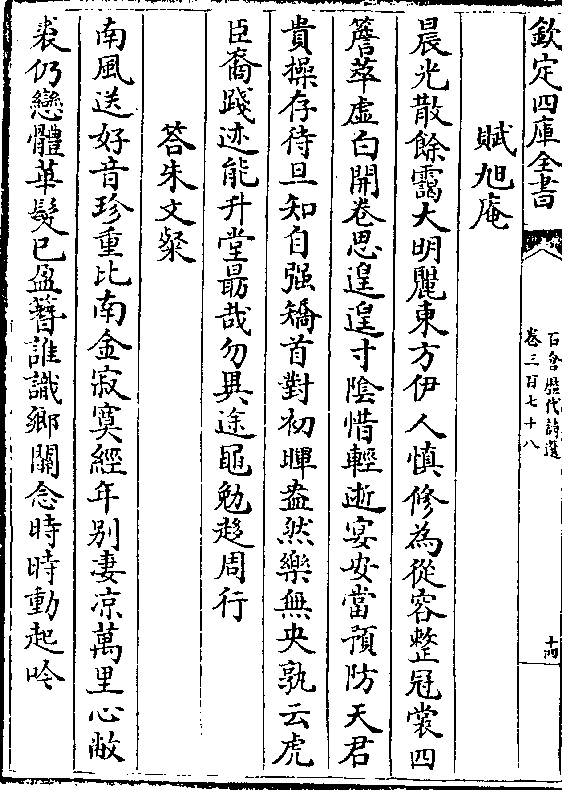 欽定四庫全書
石倉歷代詩選
卷三百七十八
十四
賦旭庵
晨光散餘靄大明麗東方伊人慎修為從容整冠裳四
簷萃虛白開卷思遑遑寸陰惜輕逝宴安當預防天君
貴操存待旦知自强矯首對初暉盎然樂無央孰云虎
臣裔踐迹能升堂勗哉勿異途黽勉趍周行
答朱文粲
南風送好音珍重比南金寂寞經年别凄凉萬里心敝
裘仍戀體華髮已盈簪誰識鄉關念時時動起吟